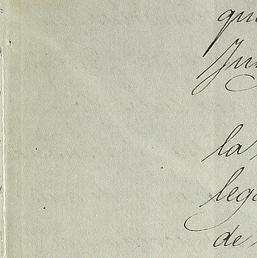 qu
Ju
la
lega
de